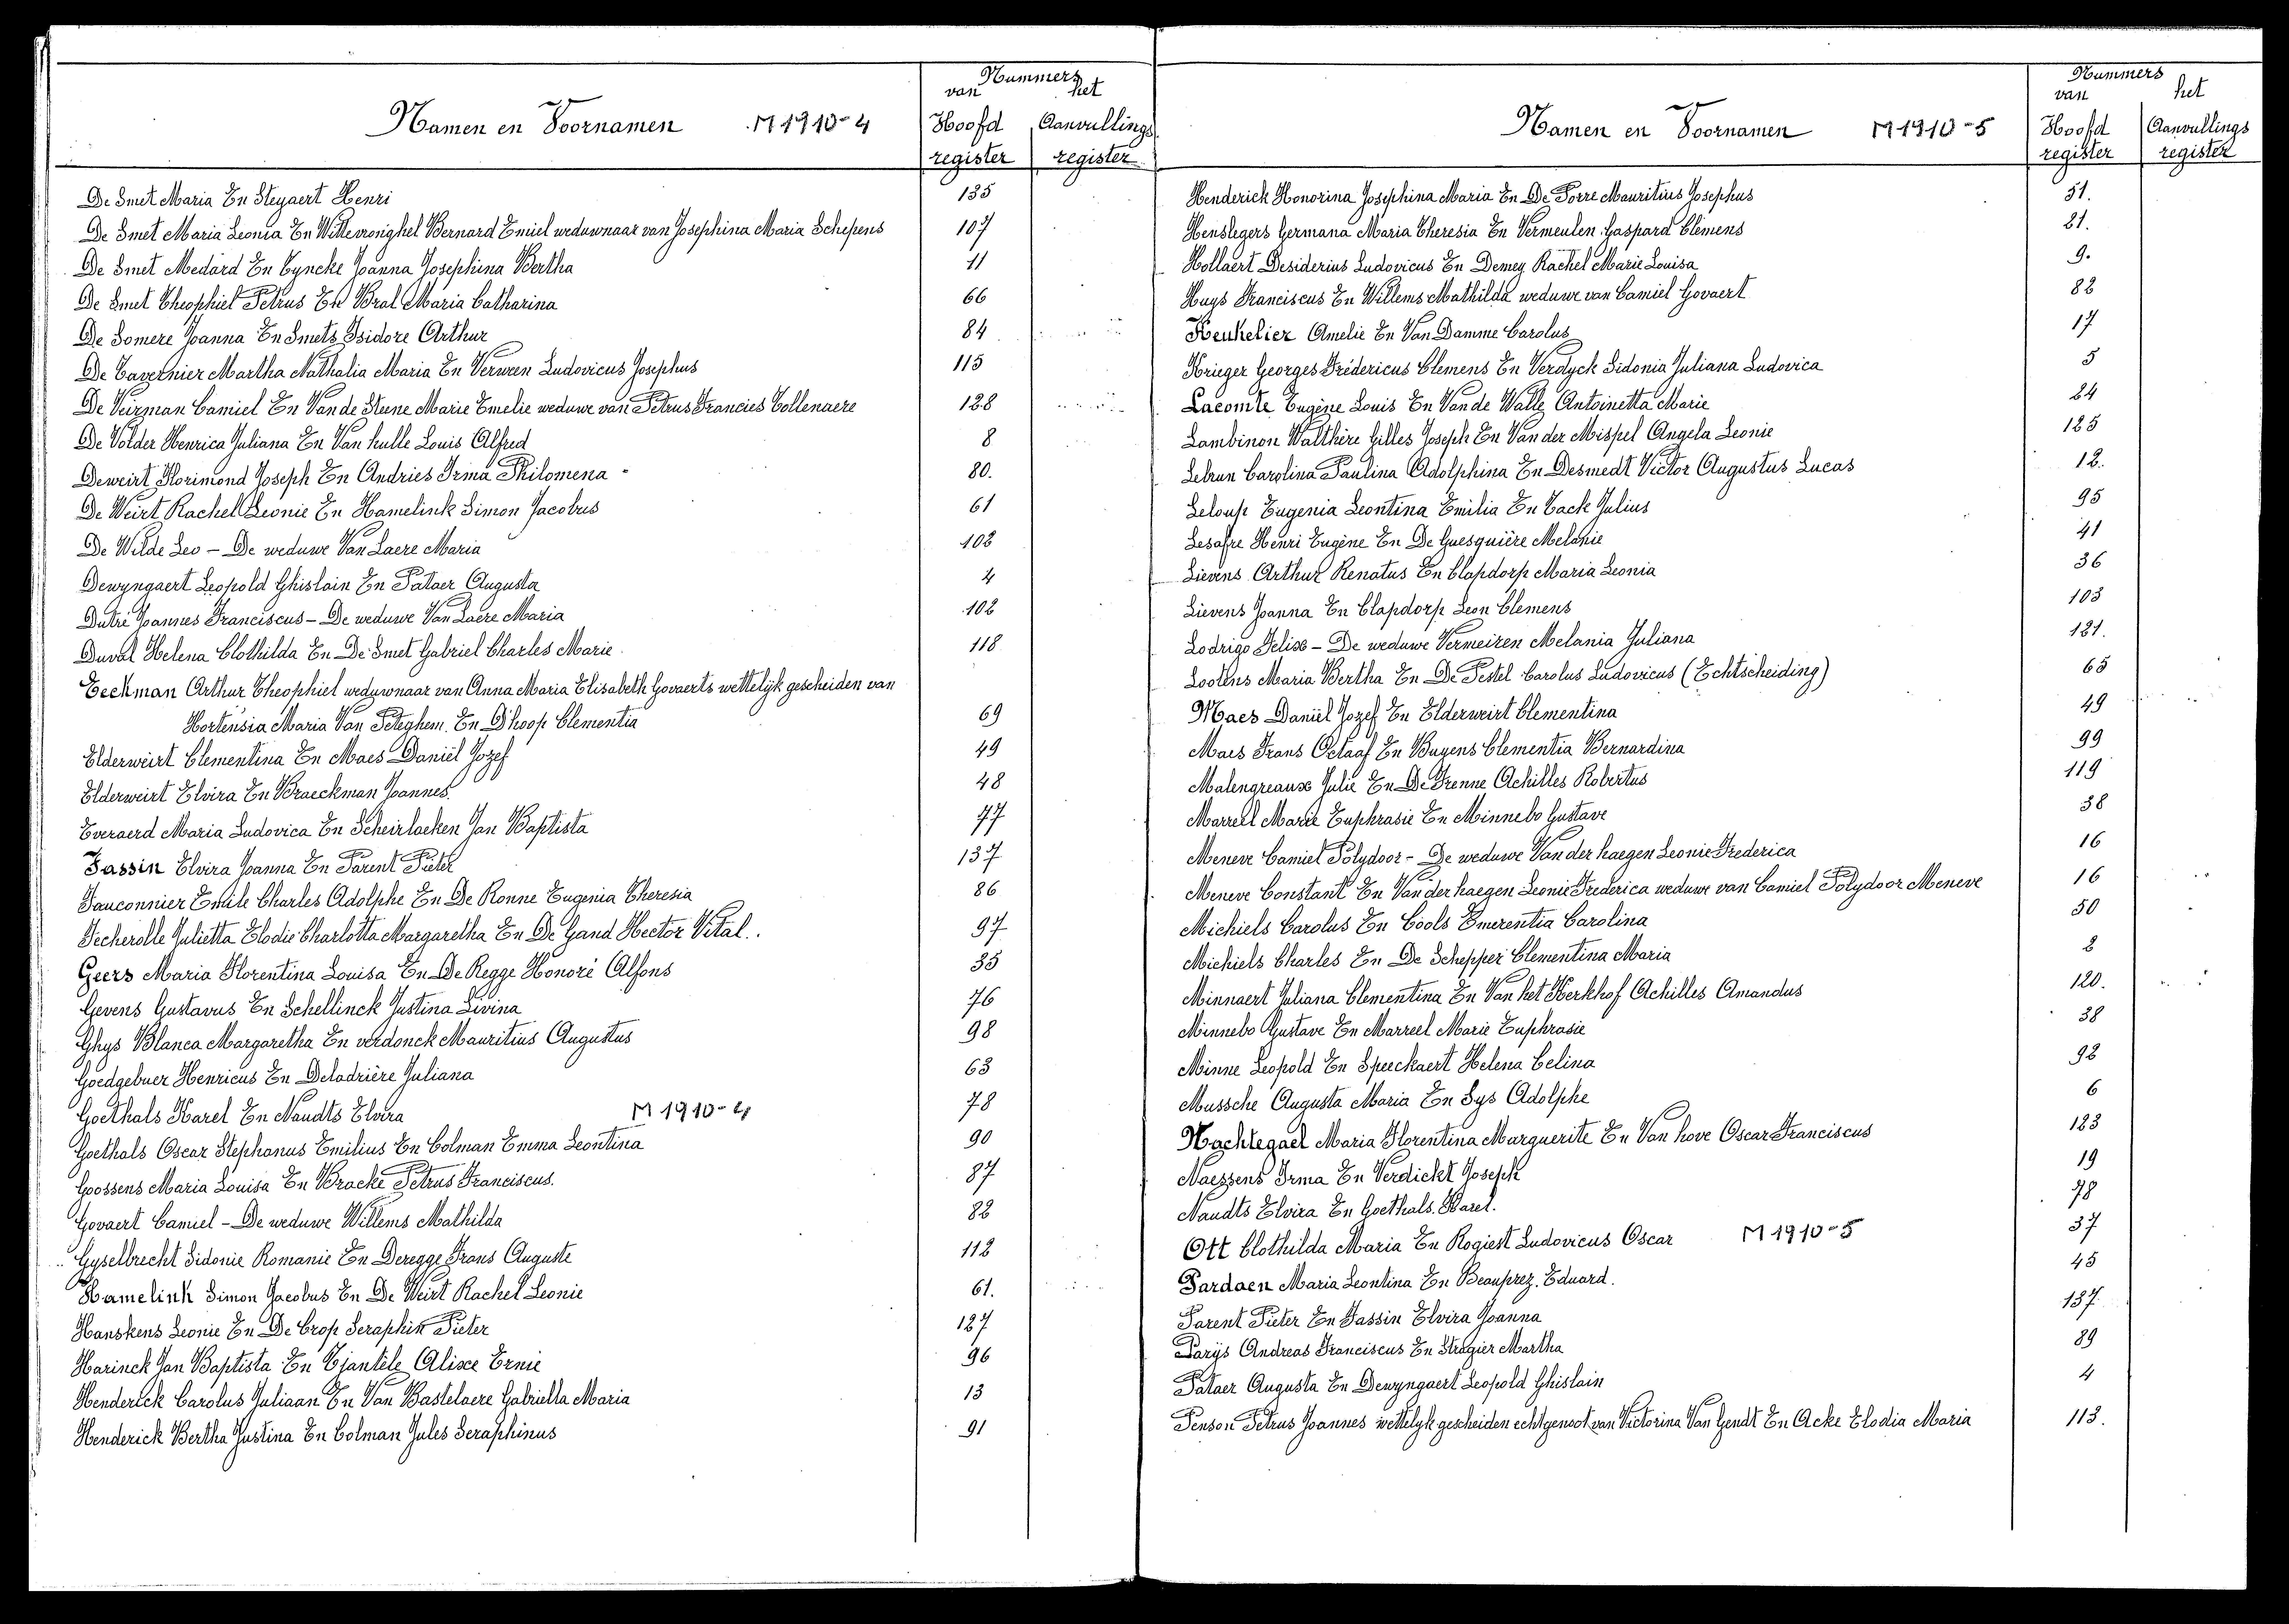 Namen en Voornamen M 1910-4
Nummers
van het
Hoofd register Aanvullings register
De Smet Maria En Steyaert Henri 135
De Smet Maria Leonia En Wittevronghel Bernard Emiel weduwnaar van Josephina Maria Schepens 107
De Smet Medard En Cyncke Joanna Josephina Bertha 11
De Smet Theophiel Petrus En Bral Maria Catharina 66
De Somere Joanna En Smets Isidore Arthur 84
De Tavernier Martha Nathalia Maria En Verween Ludovicus Josephus 115
De Veirman Camiel En Van de Steene Marie Emelie weduwe van Petrus Francies Collenaere 128
De Volder Henrica Juliana En Van hulle Louis Alfred 8
Deweirt Florimond Joseph En Andries Irma Philomena 80.
De Weirt Rachel Leonie En Hamelink Simon Jacobus 61
De Wilde Leo - De weduwe Van Laere Maria 102
Dewyngaert Leopold Ghislain En Pataer Augusta 4
Dutré Joannes Franciscus - De weduwe Van Laere Maria 102
Duval Helena Clothilda En De Smet Gabriel Charles Marie 118
Eeckman Arthur Theophiel weduwnaar van Anna Maria Elisabeth Govaerts wettelyk gescheiden van
Hortensia Maria Van Peteghem. En D'hoop Clementia 69
Elderweirt Clementina En Maes Daniël Jozef 49
Elderweirt Elvira En Braeckman Joannes 48
Everaerd Maria Ludovica En Scheirlacken Jan Baptista 77
Fassin Elvira Joanna En Parent Pieter 137
Fauconnier Emile Charles Adolphe En De Ronne Eugenia Theresia 86
Fecherolle Julietta Elodie Charlotta Margaretha En De Gand Hector Vital. 97
Geers Maria Florentina Louisa En De Regge Honoré Alfons 35
Gevens Gustavus En Schellinck Justina Livina 76
Ghys Blanca Margaretha En verdonck Mauritius Augustus 98
Goedgebuer Henricus En Deladrière Juliana 63
Goethals Karel En Naudts Elvira M 1910-4 78
Goethals Oscar Stephanus Emilius En Colman Emma Leontina 90
Goossens Maria Louisa En Bracke Petrus Franciscus. 87
Govaert Camiel - De weduwe Willems Mathilda 82
Gyselbrecht Sidonie Romanie En Deregge Frans Auguste 112
Hamelink Simon Jacobus En De Weirt Rachel Leonie 61.
Hanskens Leonie En De Crop Seraphin Pieter 127
Harinck Jan Baptista En Tjantele Alixe Ernie 96
Henderick Carolus Juliaan En Van Bastelaere Gabriella Maria 13
Henderick Bertha Justina En Colman Jules Seraphinus 91
Namen en Voornamen M 1910-5
Nummers
van het
Hoofd register Aanvullings register
Henderick Honorina Josephina Maria En De Porre Mauritius Josephus 51.
Henslegers Germana Maria Theresia En Vermeulen Gaspard Clemens 21.
Hollaert Desiderius Ludovicus En Demey Rachel Marie Louisa 9.
Huys Franciscus En Willems Mathilda weduwe van Camiel Govaert 82
Keukelier Amelie En Van Damme Carolus 17
Krieger Georges Frédericus Clemens En Verdyck Sidonia Juliana Ludovica 5
Lacomte Eugène Louis En Van de Walle Antoinetta Marie 24
Lambinon Walthère Gilles Joseph En Van der Mispel Angela Leonie 125
Lebrun Carolina Paulina Adolphina En Desmedt Victor Augustus Lucas 12.
Leloup Eugenia Leontina Emilia En Tack Julius 95
Lesafre Henri Eugène En De Guesquière Melanie 41
Lievens Arthur Renatus En Clapdorp Maria Leonia 36
Lievens Joanna En Clapdorp Leon Clemens 103
Lodrigo Felix - De weduwe Vermeiren Melania Juliana 121.
Lootens Maria Bertha En De Pestel Carolus Ludovicus (Echtscheiding) 65
Maes Daniël Jozef En Elderweirt Clementina 49
Maes Frans Octaaf En Buyens Clementia Bernardina 99
Malengreaux Julie En De Frenne Achilles Robertus 119
Marreel Marie Euphrasie En Minnebo Gustave 38
Meneve Camiel Polydoor - De weduwe Van der haegen Leonie Frederica 16
Meneve Constant En Van der haegen Leonie Frederica weduwe van Camiel Polydoor Meneve 16
Michiels Carolus En Cools Emerentia Carolina 50
Michiels Charles En De Schepper Clementina Maria 2
Minnaert Juliana Clementina En Van het Kerkhof Achilles Amandus 120.
Minnebo Gustave En Marreel Marie Euphrasie 38
Minne Leopold En Speeckaert Helena Celina 92
Mussche Augusta Maria En Sys Adolphe 6
Nachtegael Maria Florentina Marguerite En Van hove Oscar Franciscus 123
Naessens Irma En Verdickt Joseph 19
Naudts Elvira En Goethals. Karel. 78
Ott Clothilda Maria En Rogiest Ludovicus Oscar M 1910-5 37
Pardaen Maria Leontina En Beauprez. Eduard. 45
Parent Pieter En Fassin Elvira Joanna 137
Parÿs Andreas Franciscus En Stragier Martha 89
Pataer Augusta En Dewyngaert Leopold Ghislain 4
Penson Petrus Joannes wettelyk gescheiden echtgenoot van Victorina Van Gendt En Acke Elodia Maria 113.